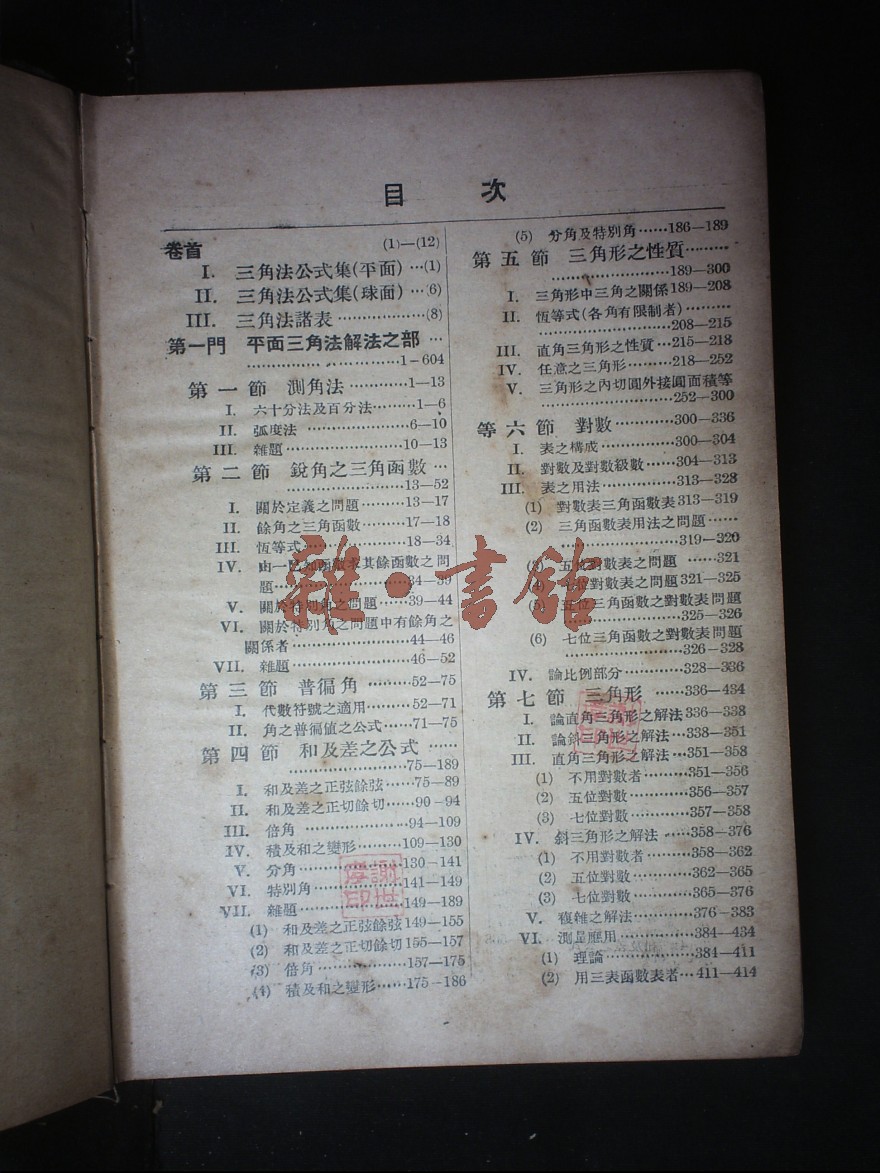 目 次
卷首 (1)—(12)
I. 三角法公式集(平面)…(1)
II. 三角法公式集(球面)…(6)
III. 三角法諸表………………(8)
第一門 平面三角法解法之部…
……………………1-604
第一節 測角法…………1—13
I. 六十分法及百分法………1—6
II. 弧度法 ………………6—10
III. 雜題……………………10—13
第二節 銳角之三角函數…
…………………………13—52
I. 關於定義之問題………13—17
II. 餘角之三角函數………17—18
III. 恆等式…………………18—34
IV. 由一已知函數求其餘函數之問
題……………………34—39
V. 關於特別角之問題……39—44
VI. 關於特別角之問題中有餘角之
關係者…………………44—46
VII. 雜題……………………46—52
第三節 普徧角………52—75
I. 代數符號之適用………52—71
II. 角之普徧値之公式……71—75
第四節 和及差之公式……
…………………………75—189
I. 和及差之正弦餘弦……75—89
II. 和及差之正切餘切……90—94
III. 倍角 …………………94—109
IV. 積及和之變形………109—130
V. 分角…………………130—141
VI. 特別角………………141—149
VII. 雜題…………………149—189
(1) 和及差之正弦餘弦149—155
(2) 和及差之正切餘切155—157
(3) 倍角………………157—175
(4) 積及和之變形……175—186
(5) 分角及特別角……186—189
第五節 三角形之性質………
…………………………189—300
I. 三角形中三角之關係189—208
II. 恆等式(各角有限制者)………
…………………………208—215
III. 直角三角形之性質…215—218
IV. 任意之三角形………218—252
V. 三角形之內切圓外接圓面積等
…………………………252—300
等六節 對數…………300—336
I. 表之構成……………300—304
II. 對數及對數級數………304—313
III. 表之用法……………313—328
(1) 對數表三角函數表313—319
(2) 三角函數表用法之問題……
…………………………319—320
(3) 五位對數表之問題 ……321
(4) 七位對數表之問題321—325
(5) 五位三角函數之對數表問題
…………………………325—326
(6) 七位三角函數之對數表問題
…………………………326—328
IV. 論比例部分…………328—336
第七節 三角形………336—434
I. 論直角三角形之解法336—338
II. 論斜三角形之解法…338—351
III. 直角三角形之解法…351—358
(1) 不用對數者…………351—356
(2) 五位對數……………356—357
(3) 七位對數……………357—358
IV. 斜三角形之解法……358—376
(1) 不用對數者…………358—362
(2) 五位對數……………362—365
(3) 七位對數……………365—376
V. 複雜之解法…………376—383
VI. 測量應用……………384—434
(1) 理論…………………384—411
(2) 用三表函數表者…411—414
雜·書館